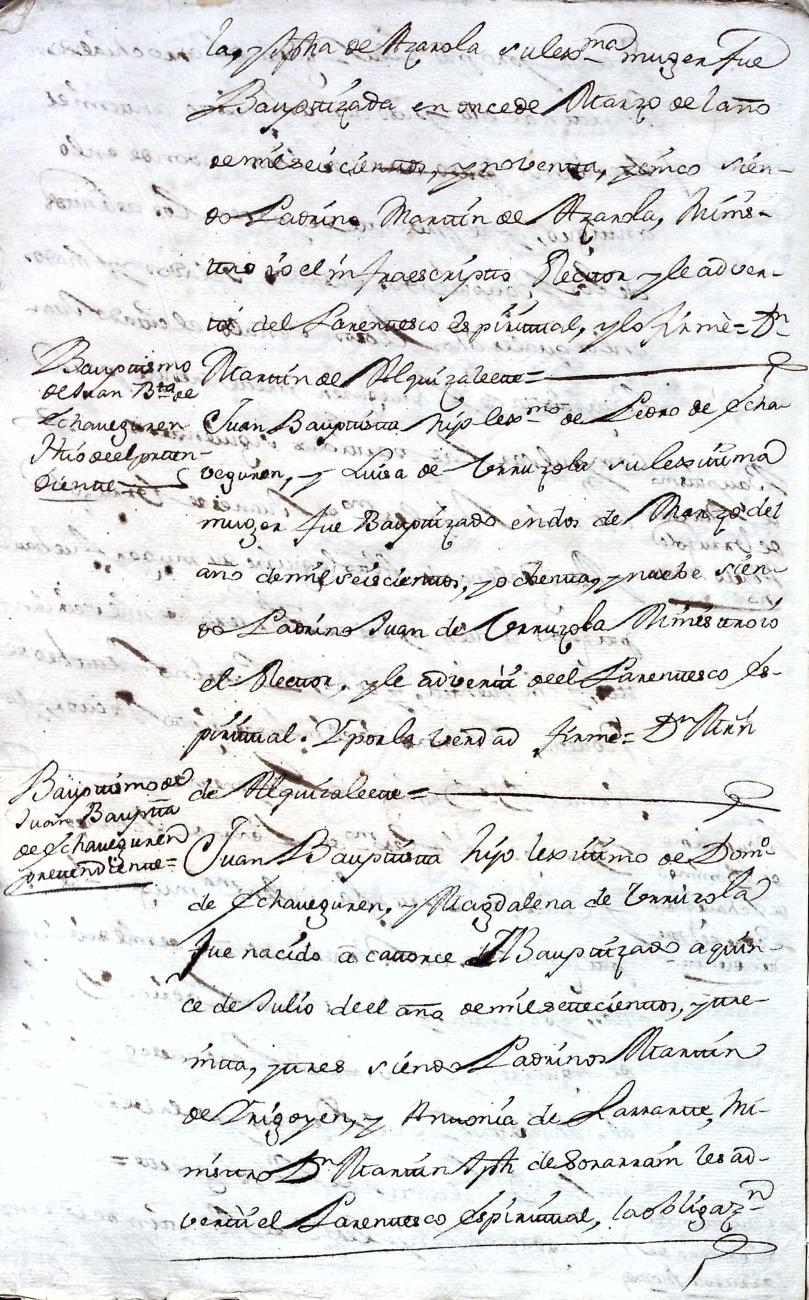 la, y Jpha de Azarola su lexma muger fue
Bauptizada en once de Marzo del año
de mil seiscientos, y noventa, y cinco sien-
do Padrino Martin de Azarola, Minis-
tro io el infraescripto Rector y le adver-
ti del Parentesco Espiritual, y lo firmè = Dn
Martin de Alquizalette =
Bauptismo
de Juan Bta de
Echaveguren
Hijo de el preten-
diente
Juan Bauptista hijo lexmo de Pedro de Echa-
veguren, y Luisa de Urruzola su lexitima
muger fue Bauptizado en dos de Marzo del
año de mil seiscientos, y ochenta, y nuebe sien-
do Padrino Juan de Urruzola Ministro io
el Rector, y le adverti de el Parentesco Es-
piritual. Y por la verdad firmè = Dn Mrn
de Alquizalette =
Bauptismo de
Juan Bauptta
de Echaveguren
pretendiente =
Juan Bauptista hijo lexitimo de Domo
de Echaveguren, y Magdalena de Urruzola
fue nacido à catorce Bauptizado a quin-
ce de Julio de el año de mil settecientos, y tre-
inta, y tres siendo Padrinos Martin
de Yrigoyen, y Antonia de Larrarte, Mi-
nistro Dn Martin Jph de Sorarrain les ad-
verti el Parentesco Espiritual, la obligazn